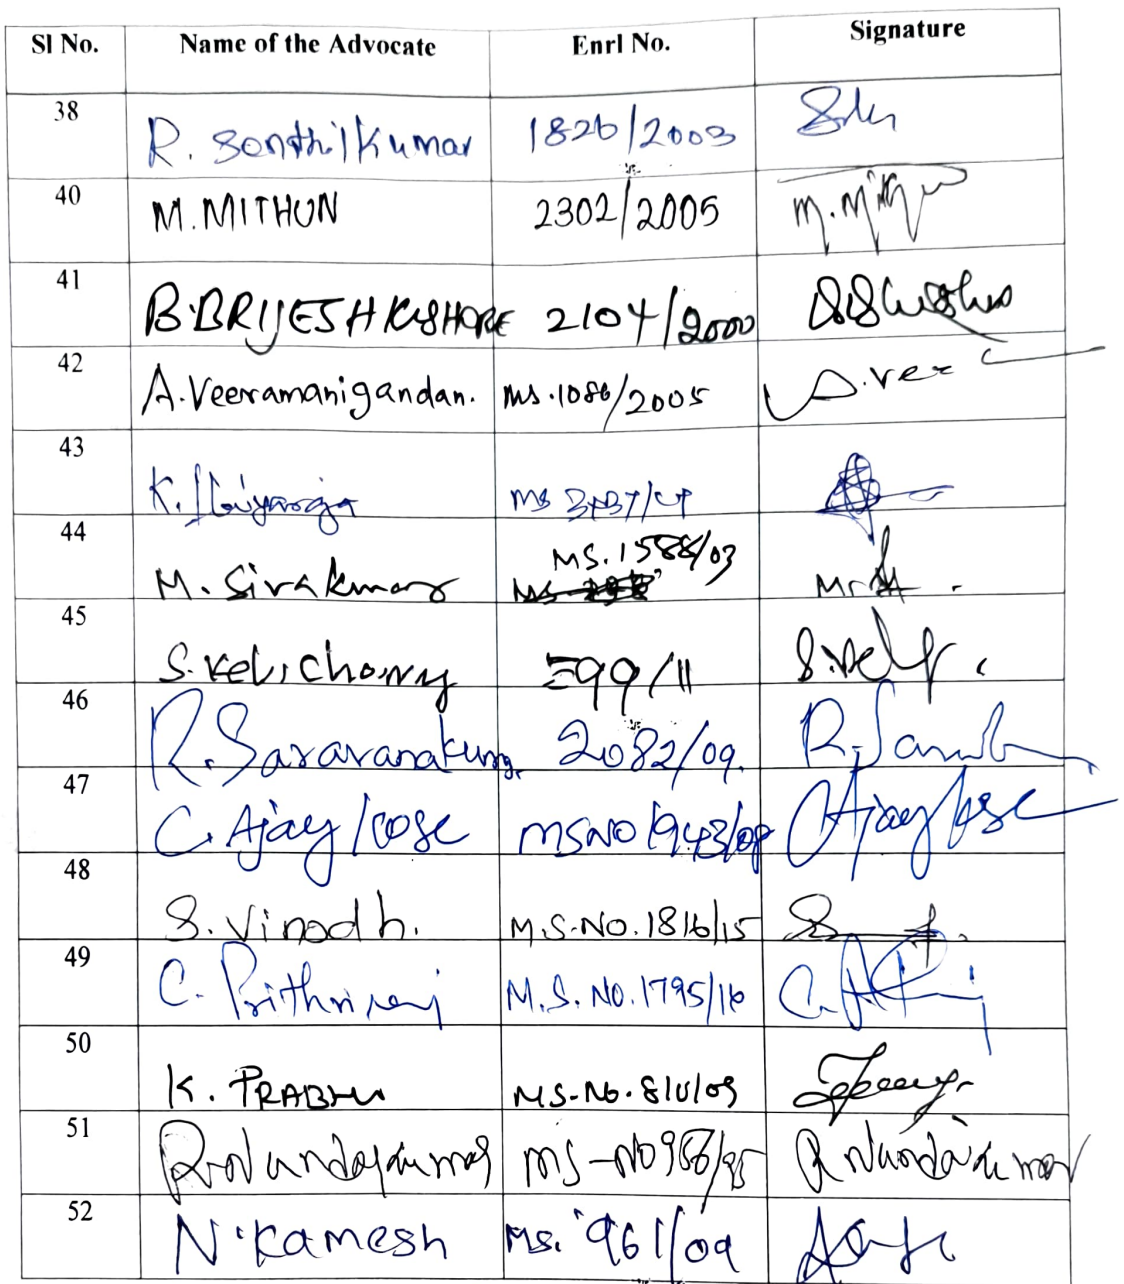 Sl No. Name of the Advocate Enrl No. Signature
38 R. Senthilkumar 1826/2003
40 M. MITHUN 2302/2005 M. Mithun
41 B. BRIJESH KISHORE 2104/2000
42 A. Veeramanigandan. MS. 1086/2005 A. Vee
43 K. Ilaiyaraja MS
44 M. Sivakumar MS. 1588/03
45 S. 99/11
46 R. Saravanakumar 2082/09. R. Sarav
47 C. Ajay Jose MSNO 1943/09 C Ajay Jose
48 S. Vinodh. M.S.NO. 1816/15
49 C. Prithviraj M.S. NO. 1795/16
50 K. PRABHU MS-No. 810/09
51 R. Nandakumar MS-NO 956/95 R Nandakumar
52 N. Kamesh MS. 961/09